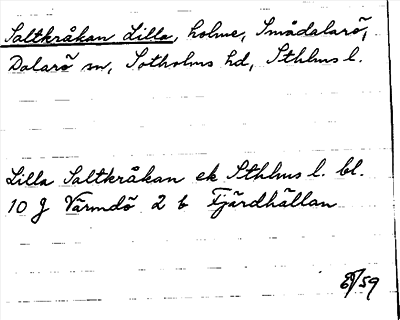 Saltkråkan Lilla, holme, Smådalarö,
Dalarö sn, Sotholms hd, Sthlms l.
Lilla Saltkråkan ek Sthlms l. bl.
10 J Värmdö 2 b Fjärdhällan
/59